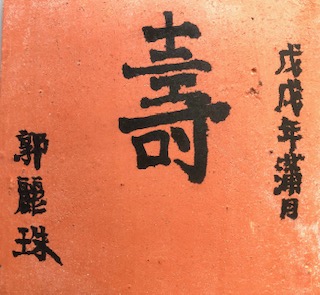 戊戌年蒲月
壽
郭麗珠